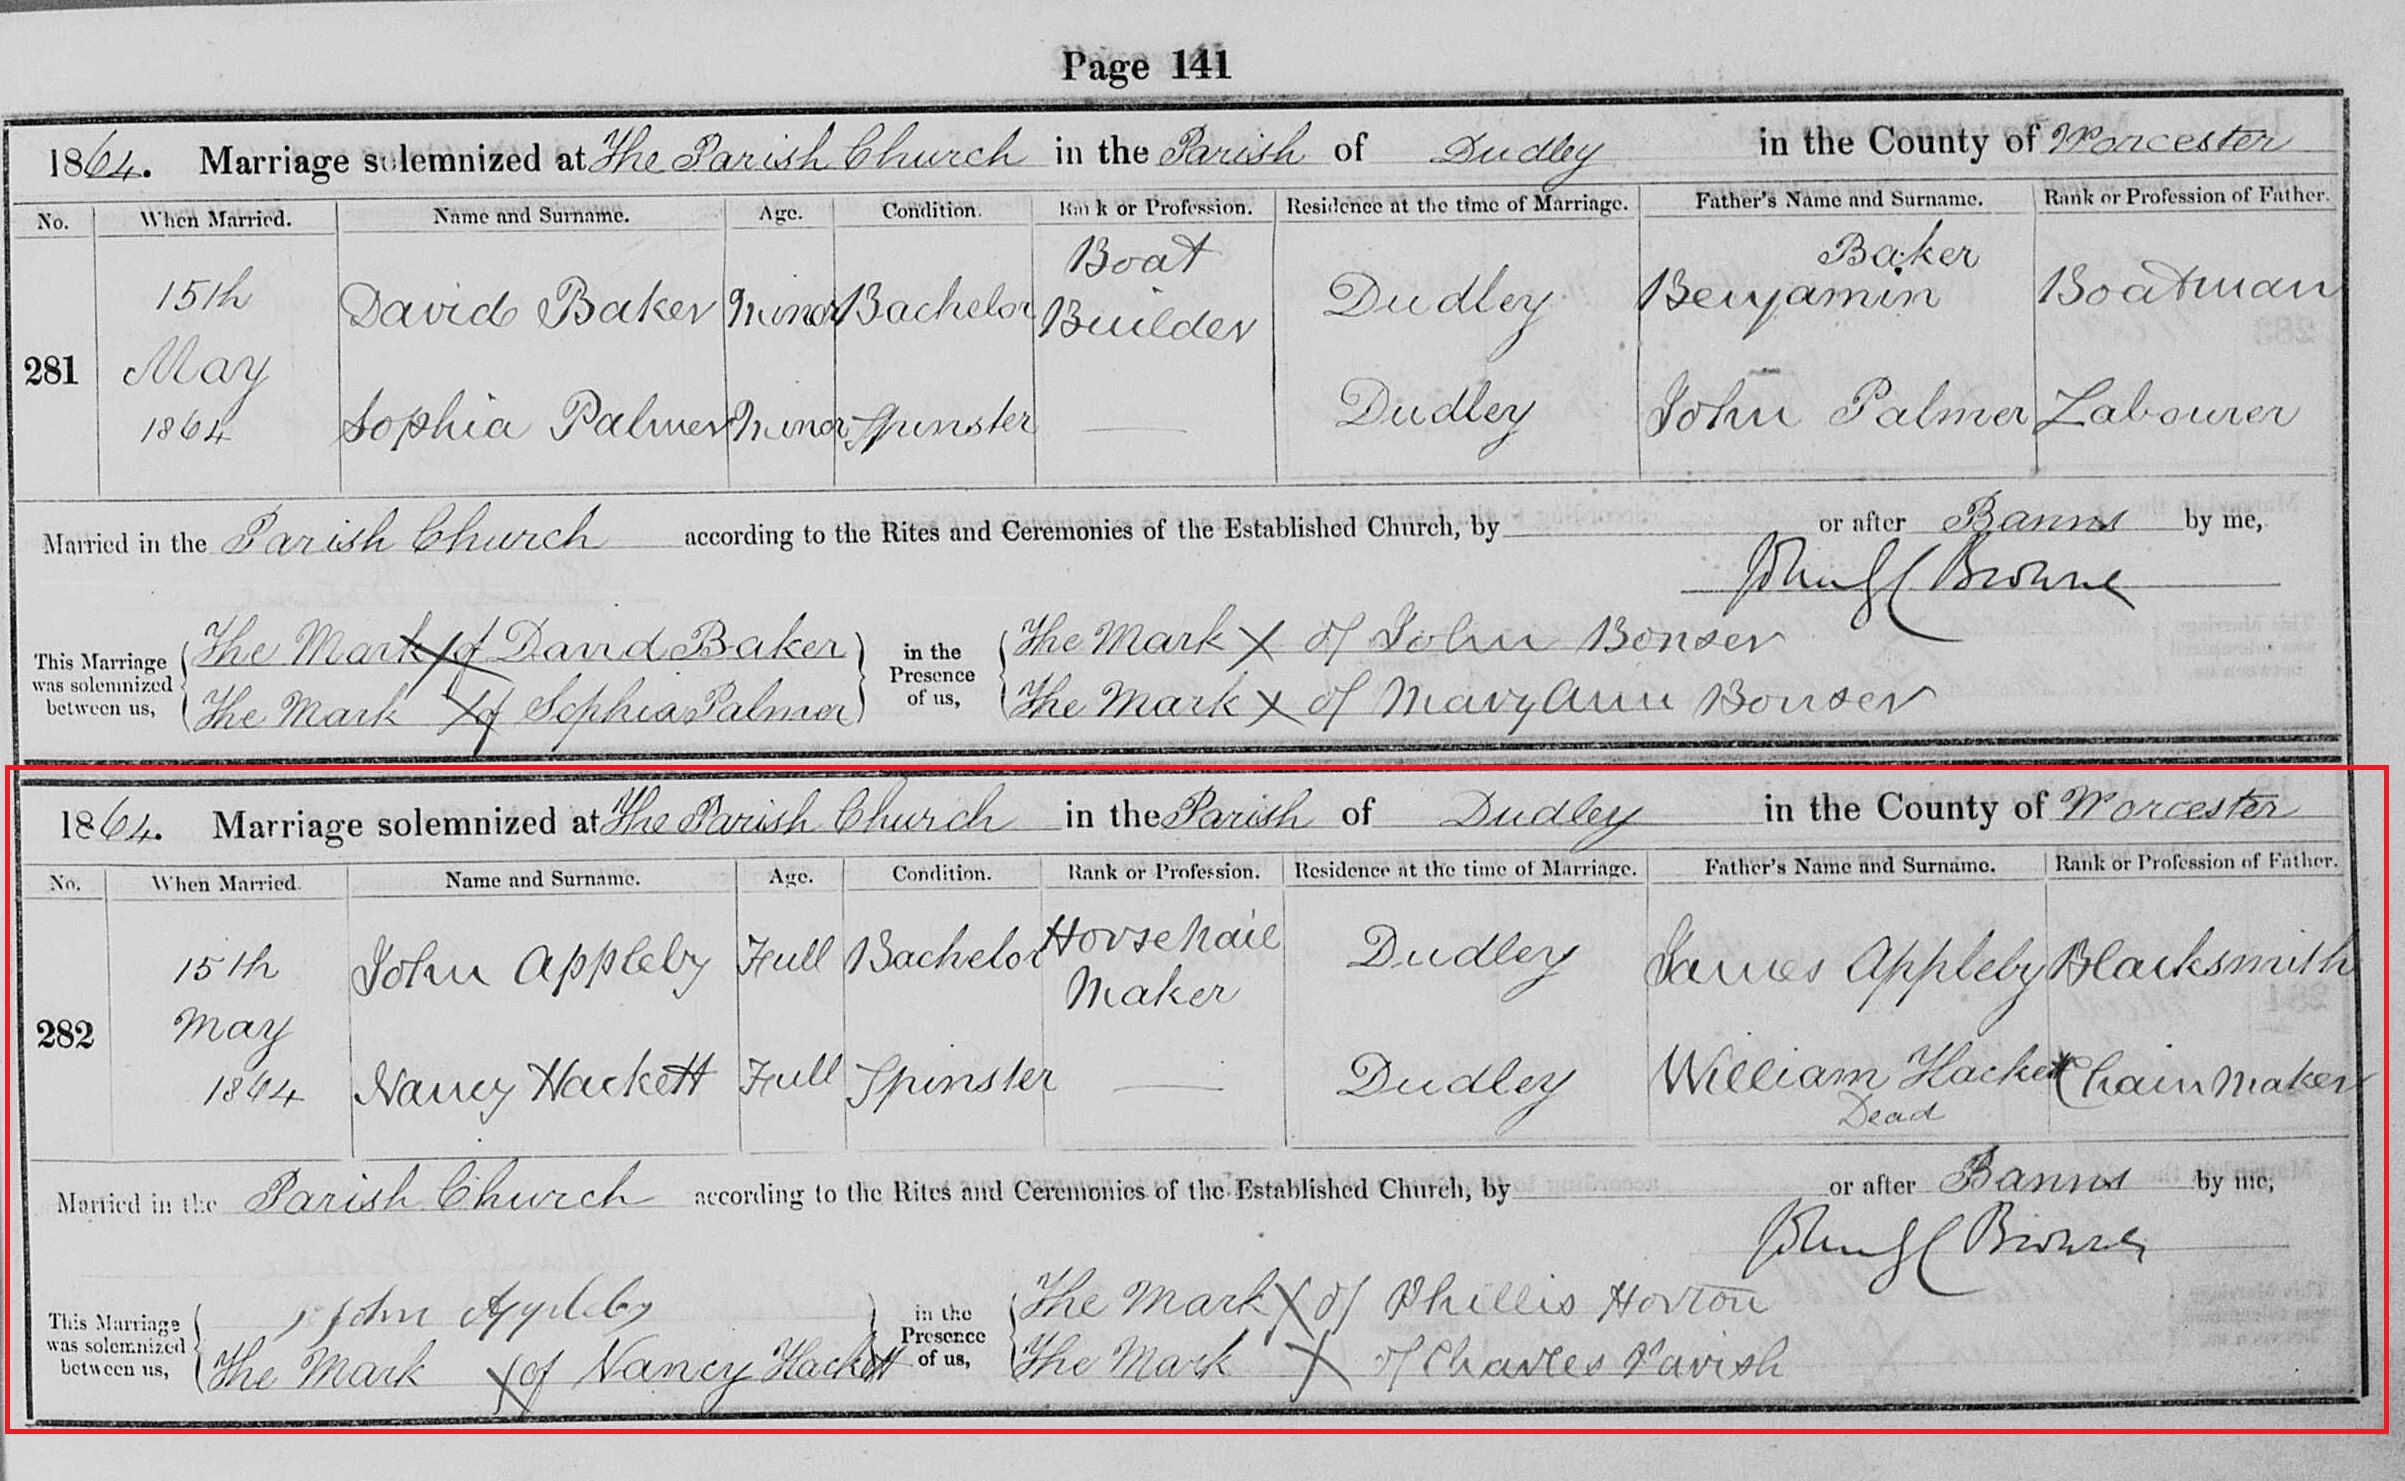 Page 141
1864. Marriage solemnized at The Parish Church in the Parish of Dudley in the County of Worcester
No. When Married. Name and Surname. Age. Condition. Rank or Profession. Residence at the time of Marriage. Father's Name and Surname. Rank or Profession of Father.
281 15th May 1864 David Baker Minor Bachelor Boat Builder Dudley Benjamin Baker Boatman
Sophia Palmer Minor Spinster — Dudley John Palmer Labourer
Married in the Parish Church according to the Rites and Ceremonies of the Established Church, by or after Banns by me,
John G C Browne
This Marriage was solemnized between us, The Mark X of David Baker in the Presence of us, The Mark X of John Bonser
The Mark X of Sophia Palmer The Mark X of Mary Ann Bonser
1864. Marriage solemnized at The Parish Church in the Parish of Dudley in the County of Worcester
No. When Married. Name and Surname. Age. Condition. Rank or Profession. Residence at the time of Marriage. Father's Name and Surname. Rank or Profession of Father.
282 15th May 1864 John Appleby Full Bachelor Horse Nail Maker Dudley James Appleby Blacksmith
Nancy Hackett Full Spinster — Dudley William Hackett Dead Chain Maker
Married in the Parish Church according to the Rites and Ceremonies of the Established Church, by or after Banns by me,
John G C Browne
This Marriage was solemnized between us, John Appleby in the Presence of us, The Mark X of Phillis Horton
The Mark X of Nancy Hackett The Mark X of Charles Parish